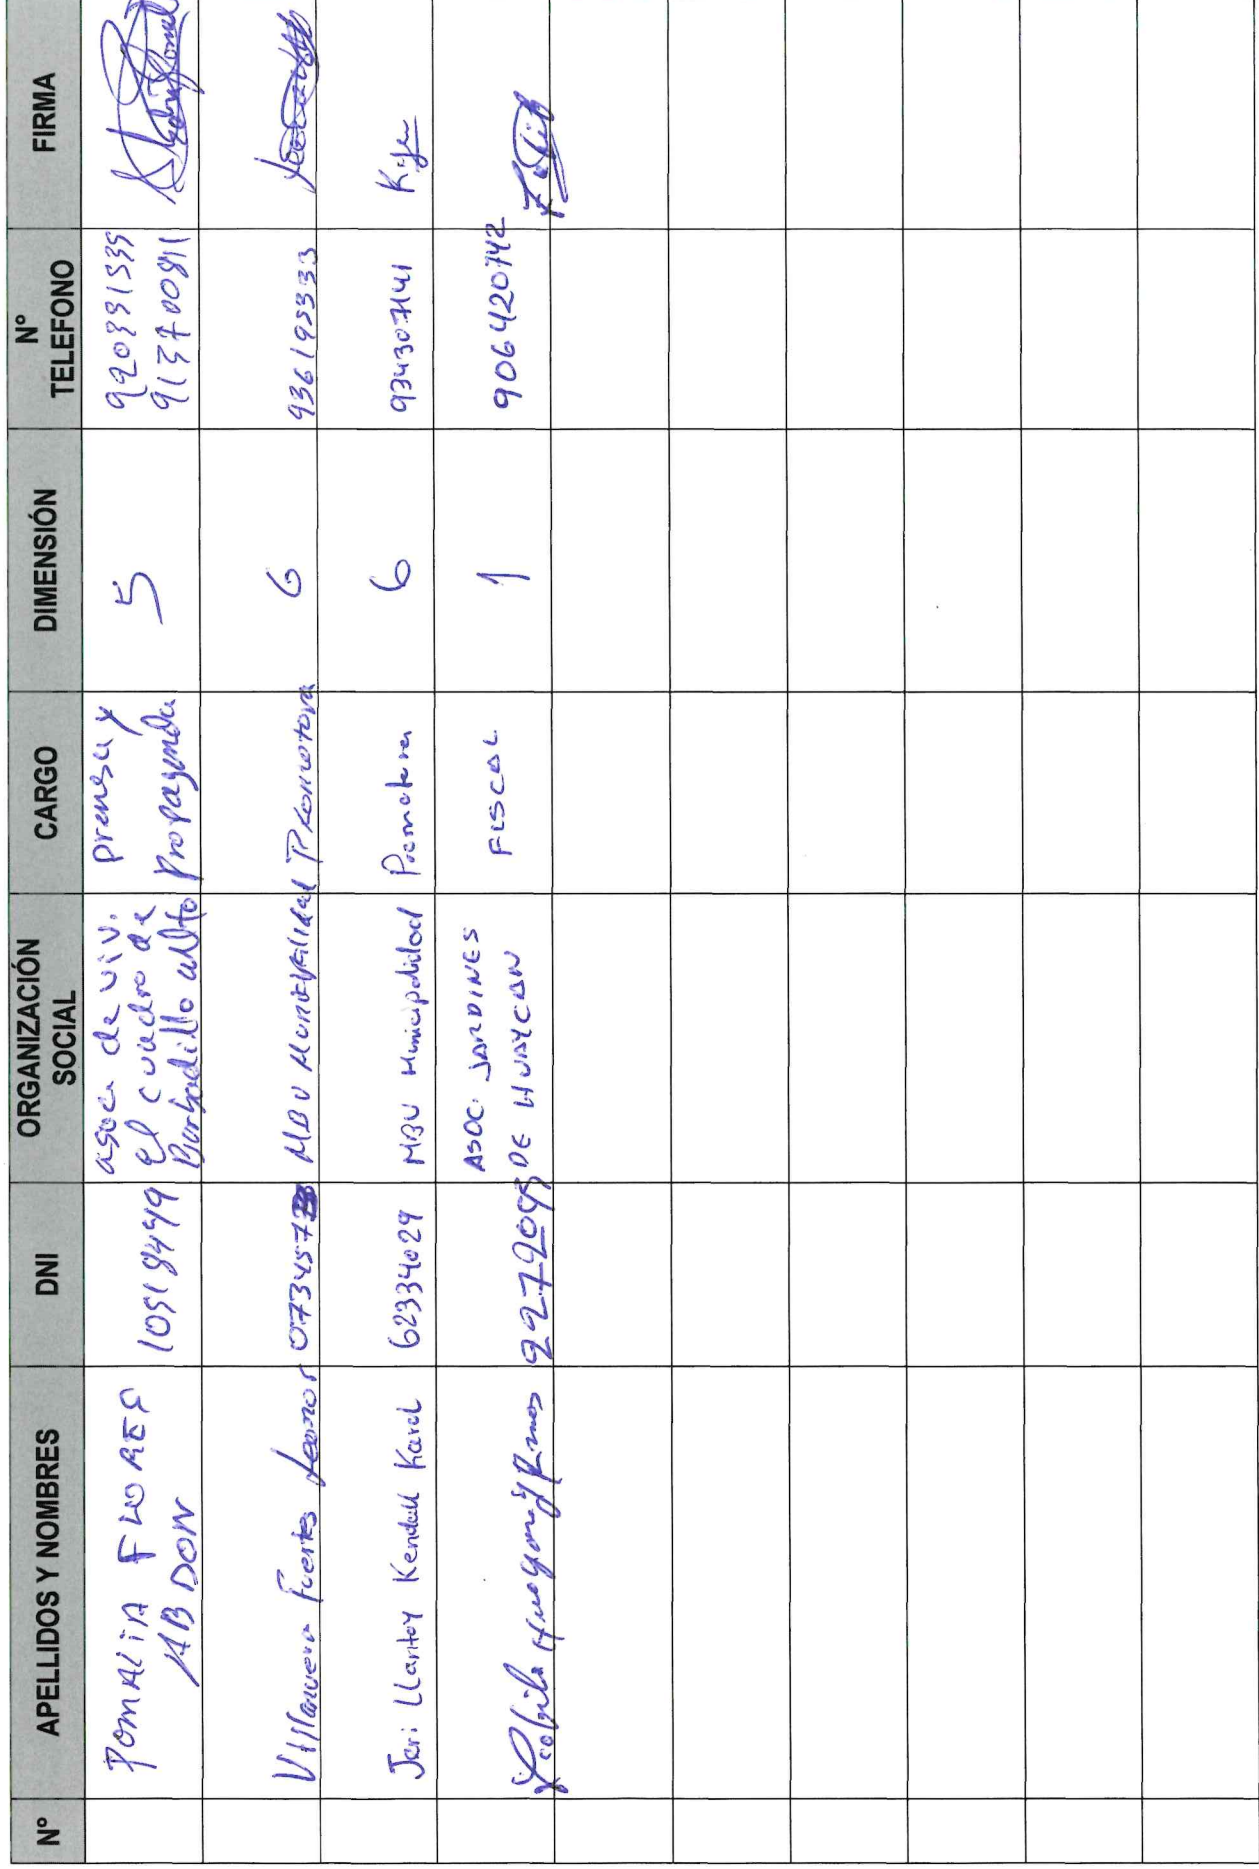 Nº APELLIDOS Y NOMBRES DNI ORGANIZACIÓN SOCIAL CARGO DIMENSIÓN Nº TELEFONO FIRMA
POMALIA FLORES ABDON 10518449 asoc de viv. el cuadro de Barbadillo alto prensa y propaganda 5
Villanueva Fuertes Leonor MBU Municipalidad Promotora 6 936195333
Jeri Llantoy Kendall Karol 62334029 MBU Municipalidad Promotora 6 934307141
ASOC. JARDINES DE HUAYCAN FISCAL 1 906420742